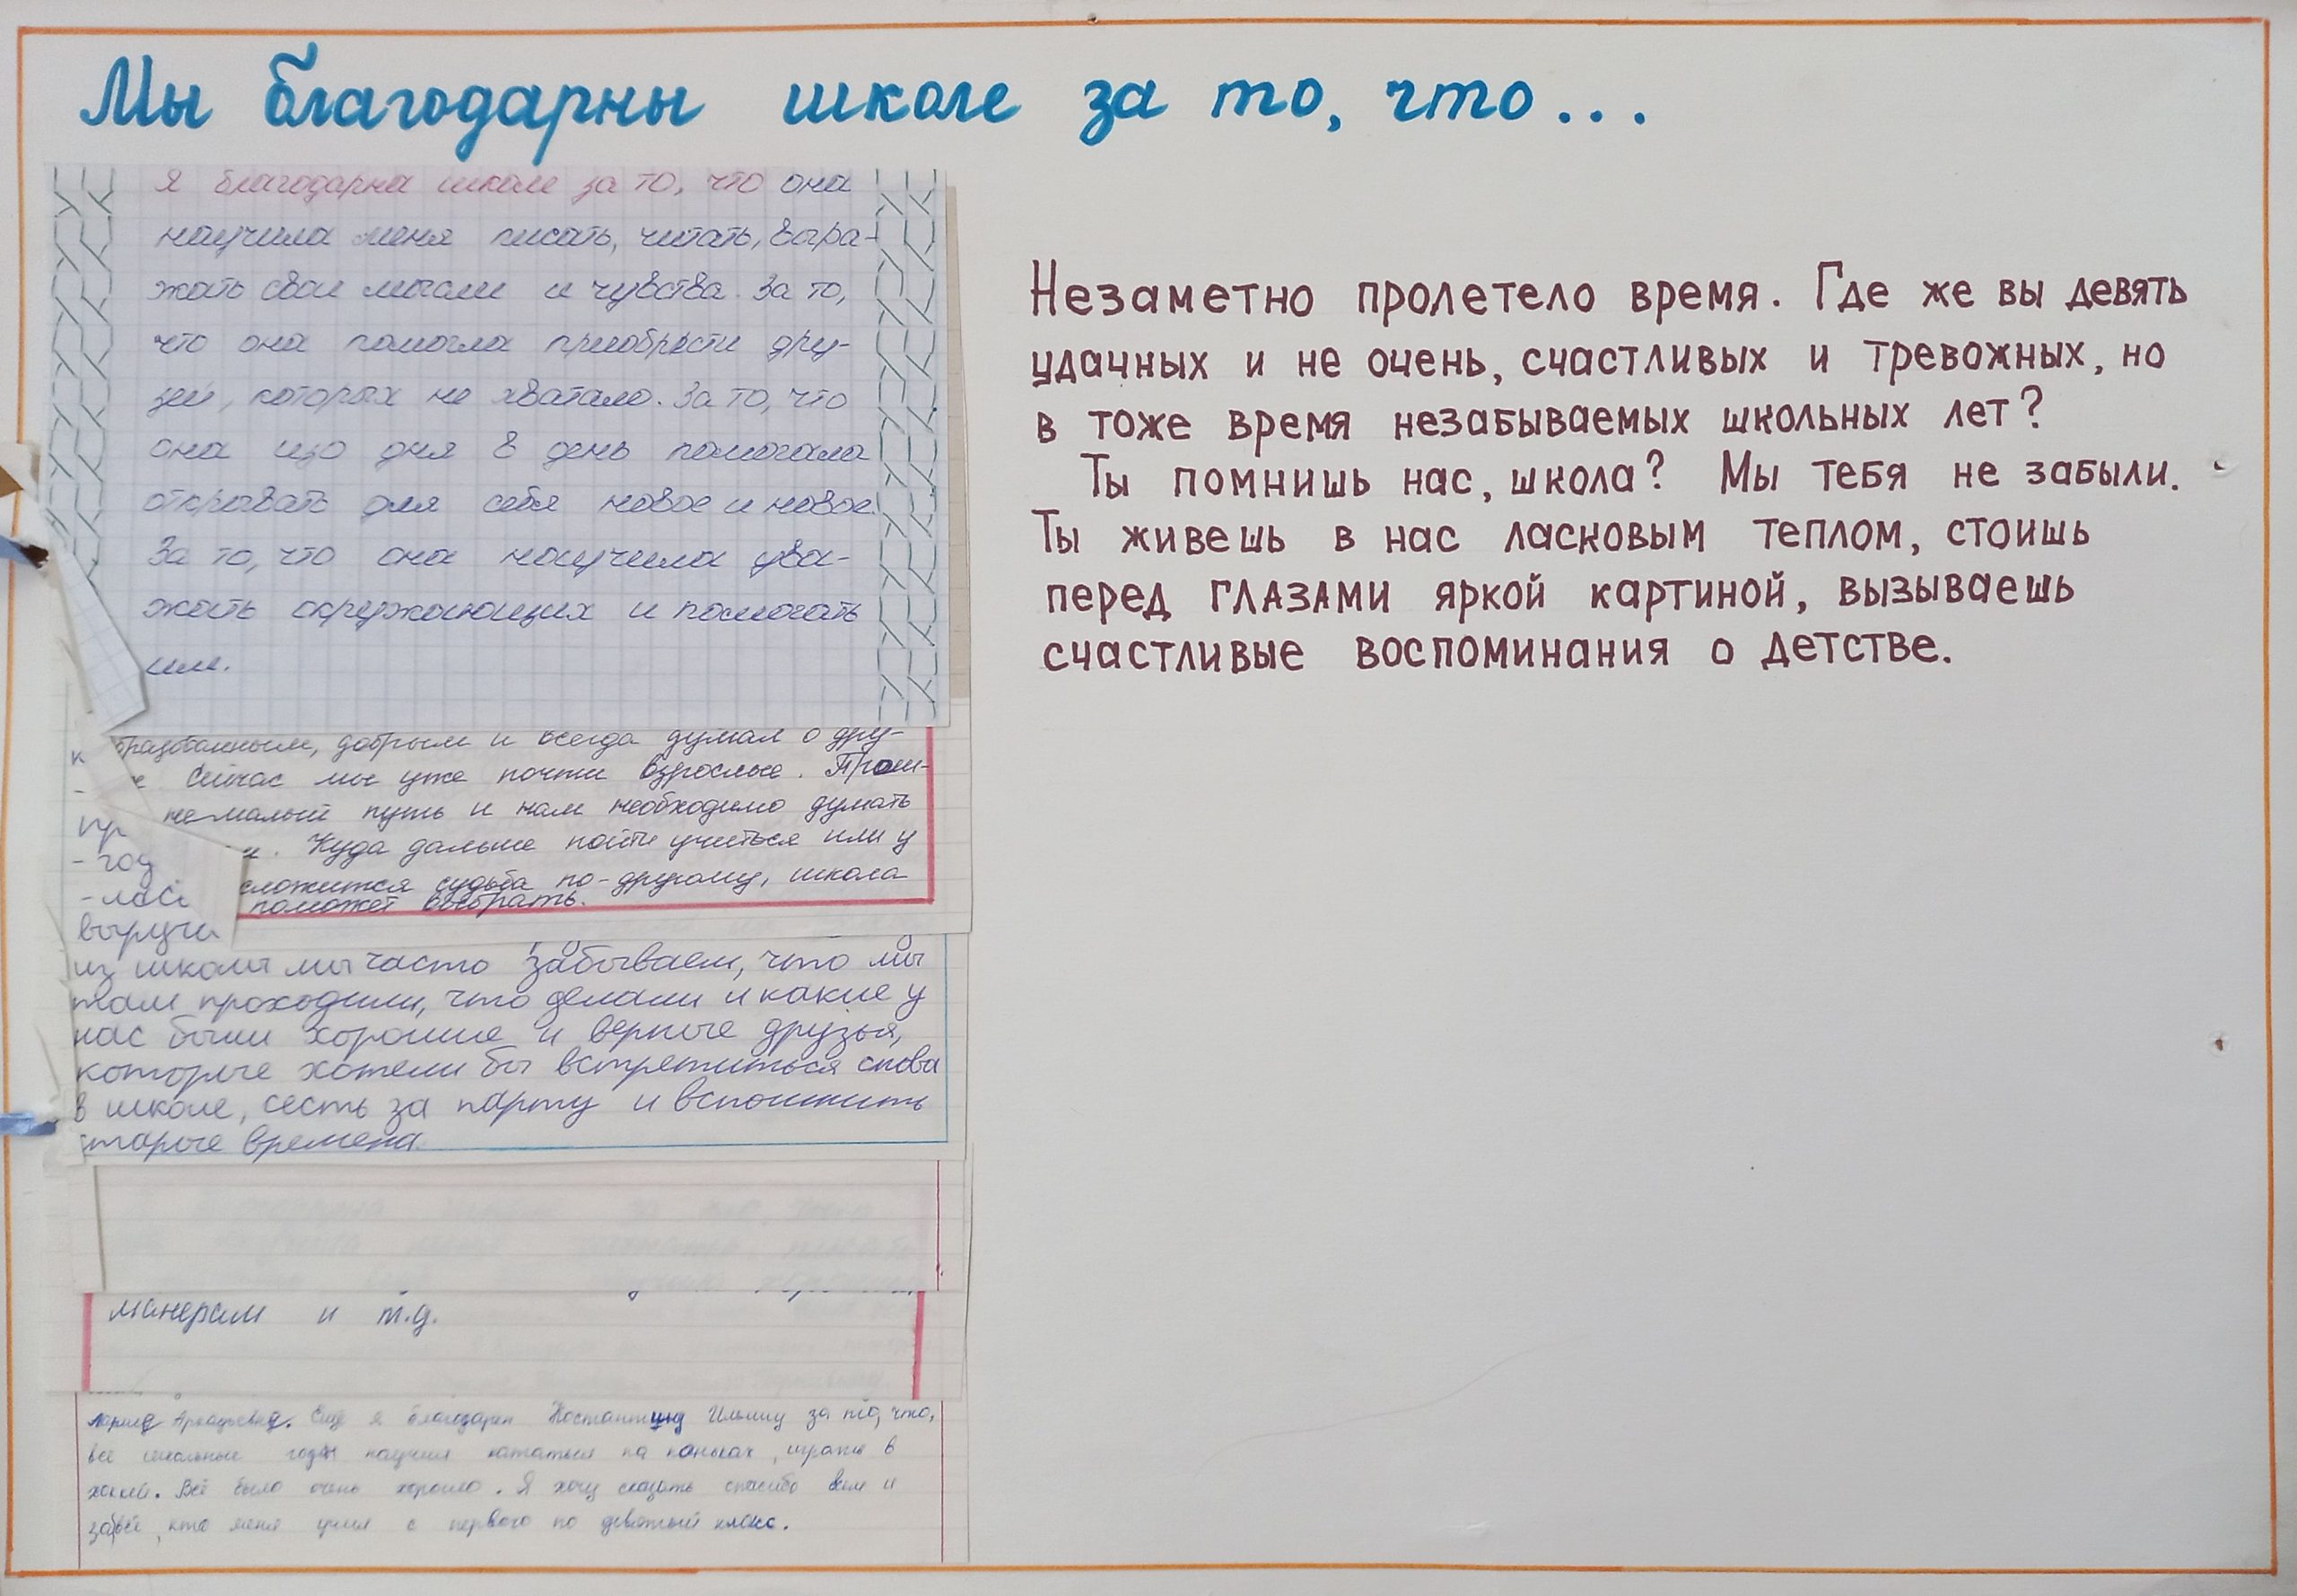 Мы благодарны школе за то, что...
Я благодарна школе за то, что она
научила меня писать, читать, выра-
жать свои мысли и чувства. За то,
что она помогла приобрести дру-
зей, которых не хватало. За то, что
она изо дня в день помогала
открывать для себя новое и новое.
За то, что она научила ува-
жать окружающих и помогать
им.
бразованным, добрым и всегда думал о дру-
Сейчас мы уже почти взрослые. Прош-
немалый путь и нам необходимо думать
Куда дальше пойти учиться или у
сложится судьба по-другому, школа
поможет выбрать.
к
-
пр
- год
- лас
выручи
из школы мы часто забываем, что мы
там проходили, что делали и какие у
нас были хорошие и верные друзья,
которые хотели бы встретиться снова
в школе, сесть за парту и вспомнить
старые времена.
манерам и т.д.
Аркадьевне. Ещё я благодарен Костантину Ильичу за то, что,
все школьные годы научил кататься на коньках, играть в
хоккей. Всё было очень хорошо. Я хочу сказать спасибо всем и
кто меня учил с первого по девятый класс.
Незаметно пролетело время. Где же вы девять
удачных и не очень, счастливых и тревожных, но
в тоже время незабываемых школьных лет?
Ты помнишь нас, школа? Мы тебя не забыли.
Ты живешь в нас ласковым теплом, стоишь
перед глазами яркой картиной, вызываешь
счастливые воспоминания о детстве.